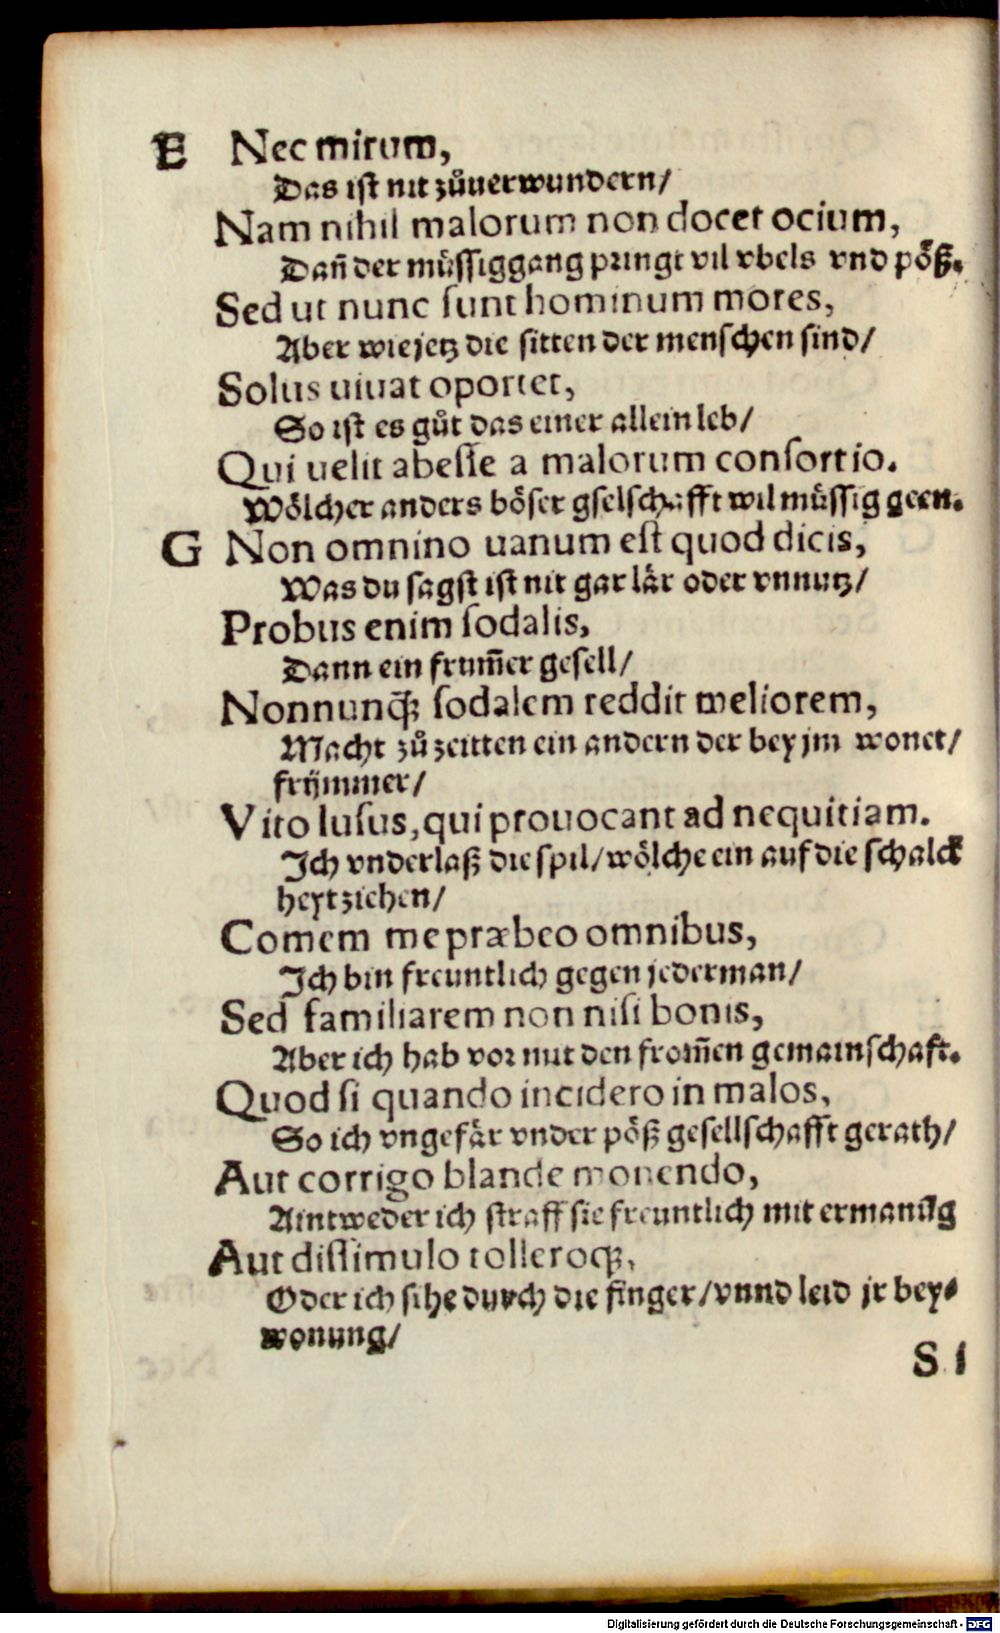 E Nec mirum,
Das ist nit zůuerwundern/
Nam nihil malorum non docet ocium,
Dañ der müssiggang pringt vil vbels vnd pöß.
Sed ut nunc sunt hominum mores,
Aber wie jetz die sitten der menschen sind/
Solus uiuat oportet,
So ist es gůt das einer allein leb/
Qui uelit abesse a malorum consortio.
Wölcher anders böser gselschafft wil müssig geen.
G Non omnino uanum est quod dicis,
Was du sagst ist nit gar lär oder vnnutz/
Probus enim sodalis,
Dann ein frum̃er gesell/
Nonnunq̃; sodalem reddit meliorem,
Macht zů zeitten ein andern der bey jm wonet/
frÿmmer/
Vito lusus, qui prouocant ad nequitiam.
Ich vnderlaß die spil/wölche ein auf die schalck
heyt ziehen/
Comem me præbeo omnibus,
Ich bin freuntlich gegen jederman/
Sed familiarem non nisi bonis,
Aber ich hab vor mit den from̃en gemainschaft.
Quod si quando incidero in malos,
So ich vngefär vnder pöß gesellschafft gerath/
Aut corrigo blande monendo,
Aintweder ich straff sie freuntlich mit ermanũg
Aut dissimulo tolleroq;,
Oder ich sihe durch die finger/vnnd leid jr bey-
wonung/
Si
Digitalisierung gefördert durch die Deutsche Forschungsgemeinschaft - DFG